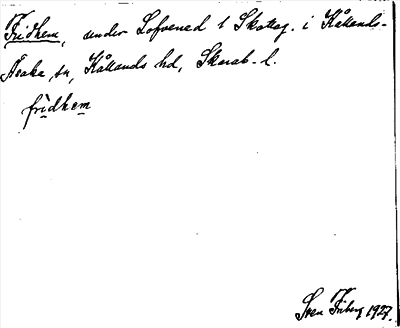 Fridhem, under Lofvened 1 Skattag. i Kållands-
Åsaka sn, Kållands hd, Skarab. l.
frìdhem
Sven Friberg 1927.